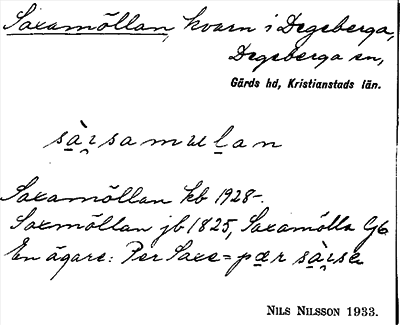 Saxamöllan, kvarn i Degeberga,
Degeberga sn,
Gärds hd, Kristianstads län.
Saxamöllan kb 1928-.
Saxmöllan jb 1825, Saxamölla Gk
En ägare: Per Saxe =
NILS NILSSON 1933.